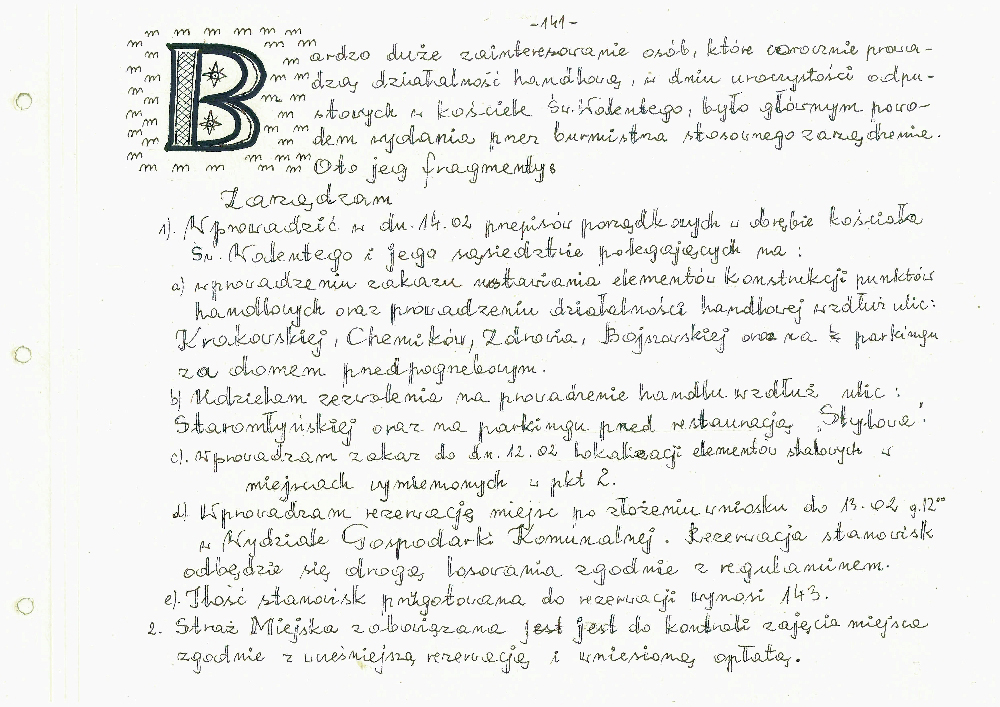 -141-
Bardzo duże zainteresowanie osób, które corocznie prowa-
dzą działalność handlową, w dniu uroczystości odpu-
stowych w kościele Św. Walentego, było głównym powo-
dem wydania przez burmistrza stosownego zarządzenie.
Oto jeg fragmenty:
Zarządzam
1). Wprowadzić w dn. 14.02 przepisów porządkowych w obrębie kościoła
Św. Walentego i jego sąsiedztwie polegających na :
a) wprowadzeniu zakazu ustawiania elementów konstrukcji punktów
handlowych oraz prowadzeniu działalności handlowej wzdłuż ulic:
Krakowskiej, Chemików, Zdrowia, Bojszowskiej oraz na ½ parkingu
za domem przedpogrzebowym.
b) Udzielam zezwolenia na prowadzenie handlu wzdłuż ulic :
Staromłyńskiej oraz na parkingu przed restauracją „Stylowa".
c). Wprowadzam zakaz do dn. 12.02 lokalizacji elementów stalowych w
miejscach wymienionych w pkt 2.
d) Wprowadzam rezerwację miejsc po złożeniu wniosku do 13.02 g.12⁰⁰
w Wydziale Gospodarki Komunalnej. Rezerwacja stanowisk
odbędzie się drogą losowania zgodnie z regulaminem.
e). Ilość stanowisk przygotowana do rezerwacji wynosi 143.
2. Straż Miejska zobowiązana jest jest do kontroli zajęcia miejsca
zgodnie z wcześniejszą rezerwacją i wniesioną opłatą.